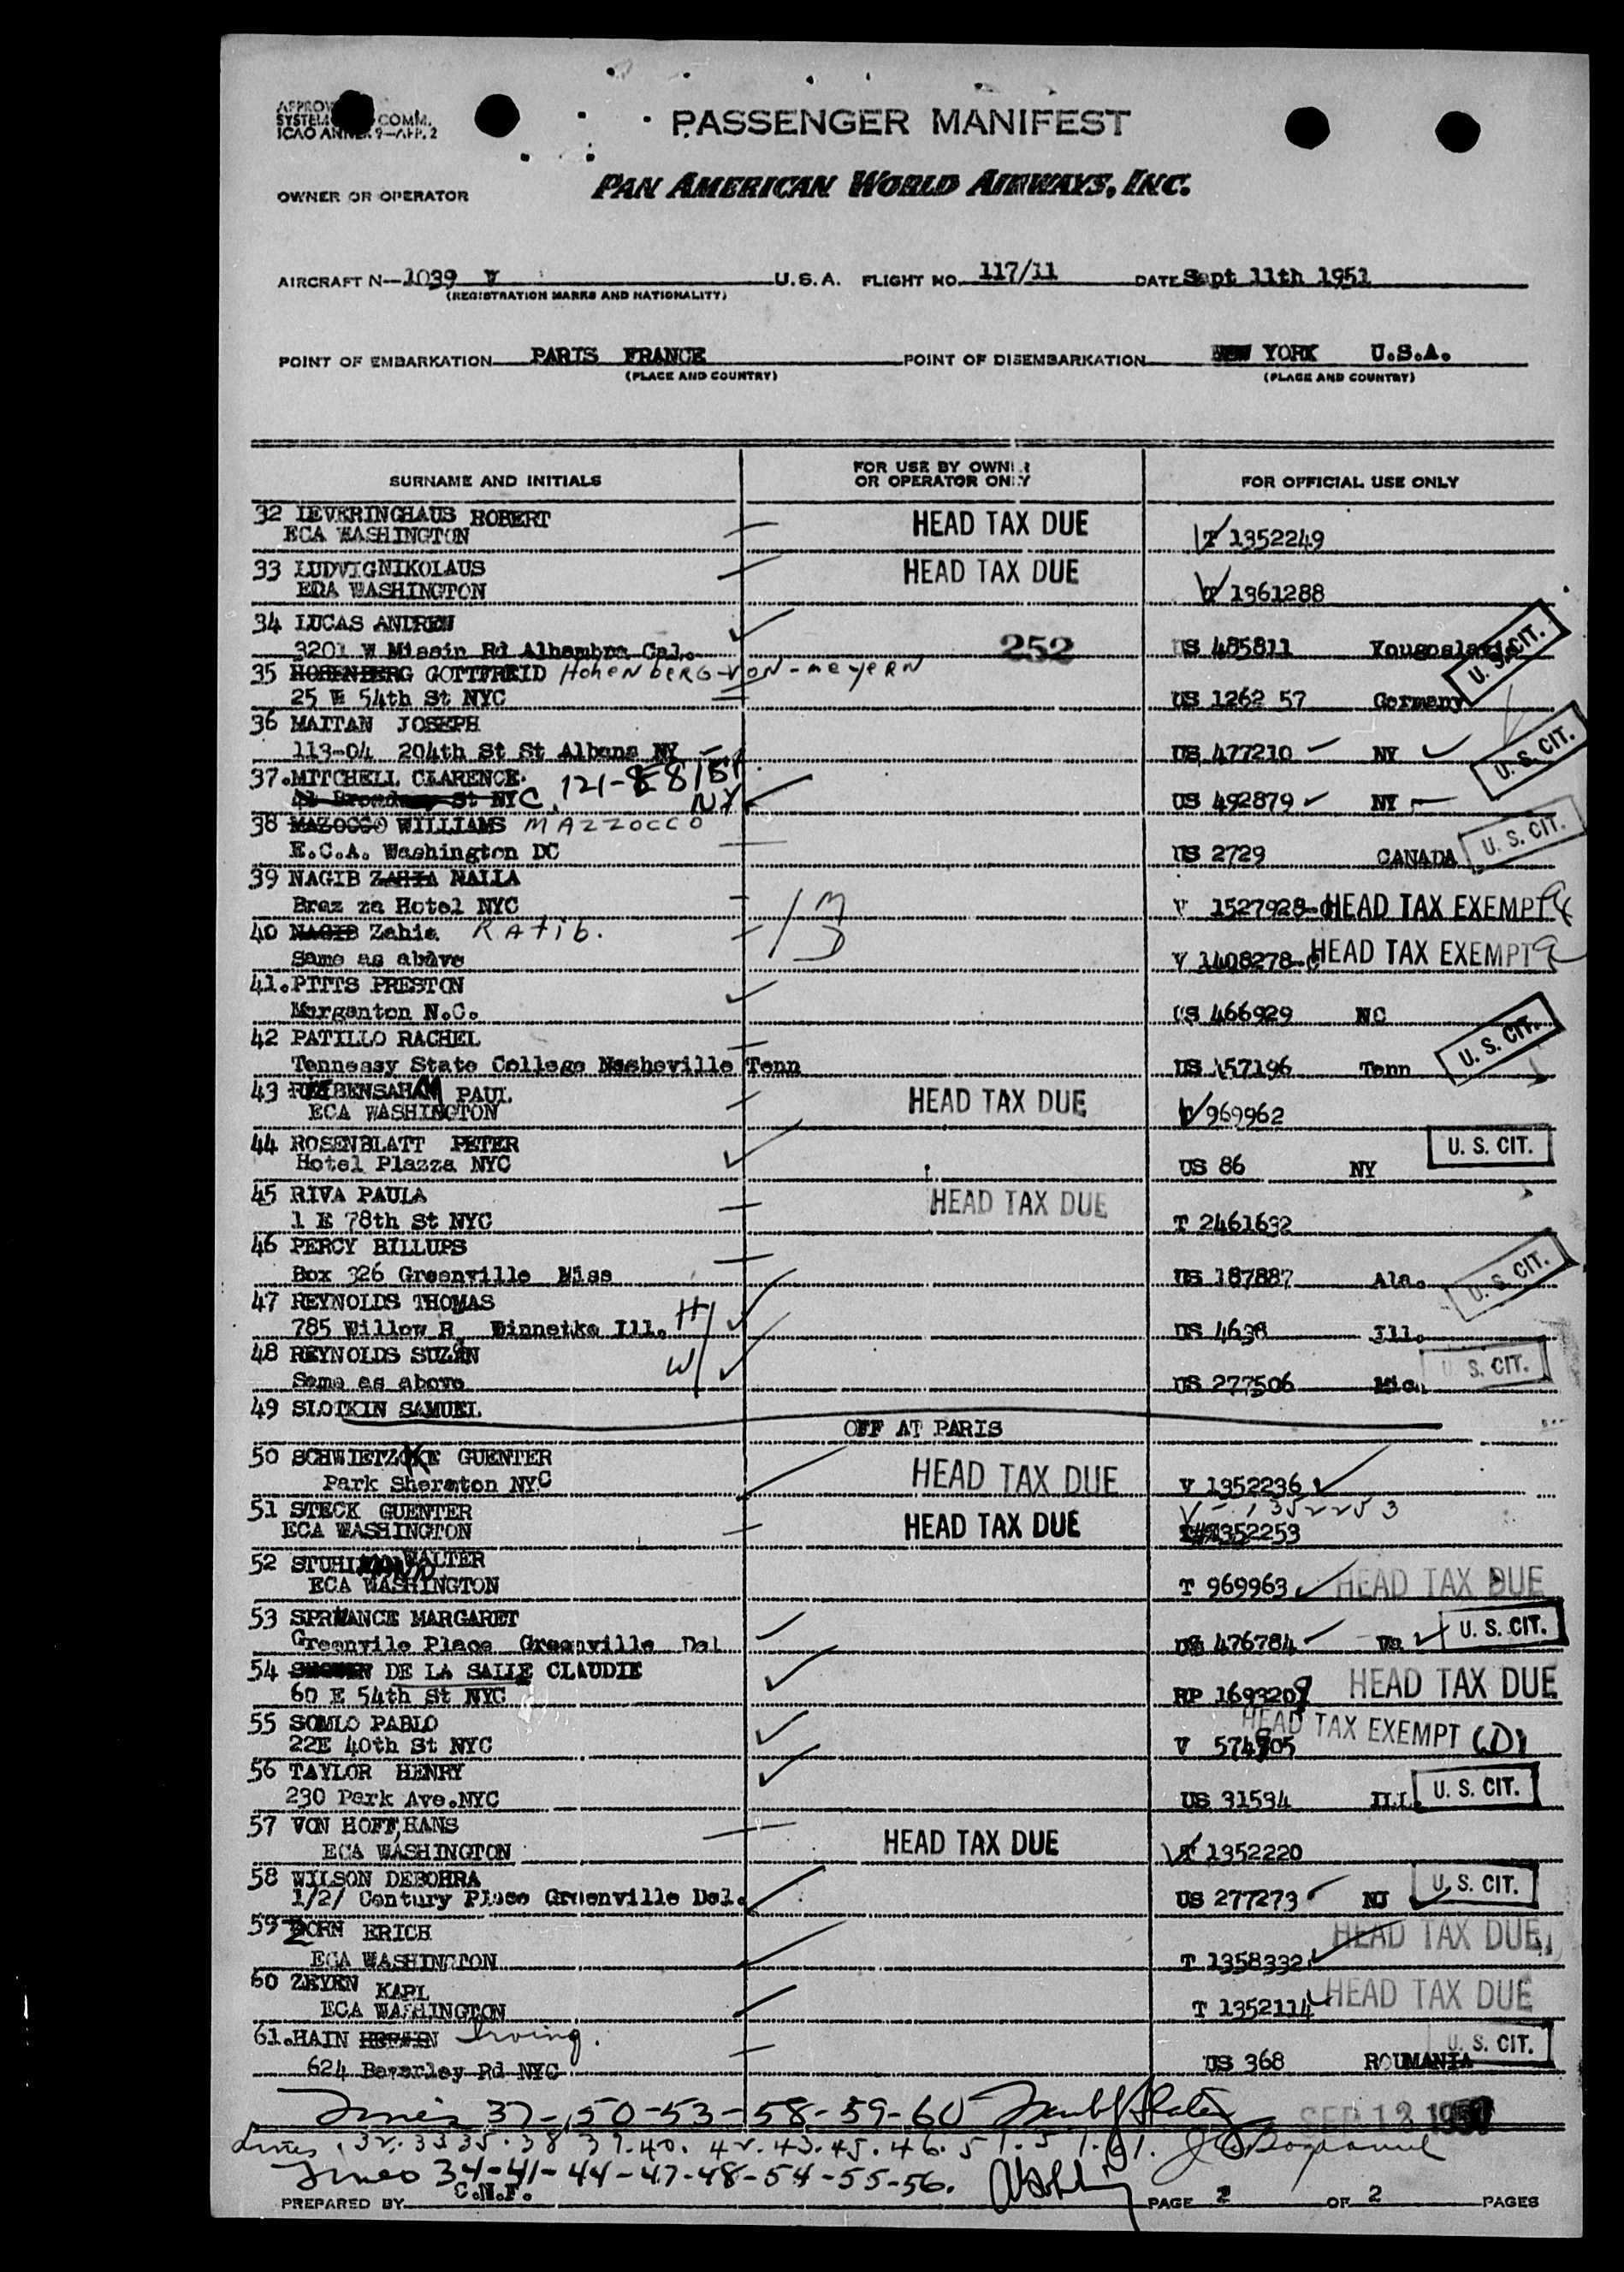 PASSENGER MANIFEST
OWNER OR OPERATOR PAN AMERICAN WORLD AIRWAYS, INC.
AIRCRAFT N-1039 V U.S.A. FLIGHT NO. 117/11 DATE Sept 11th 1951
(REGISTRATION MARKS AND NATIONALITY)
POINT OF EMBARKATION PARIS FRANCE POINT OF DISEMBARKATION NEW YORK U.S.A.
(PLACE AND COUNTRY) (PLACE AND COUNTRY)
SURNAME AND INITIALS FOR USE BY OWNER OR OPERATOR ONLY FOR OFFICIAL USE ONLY
32 LEVERINGHAUS ROBERT HEAD TAX DUE
ECA WASHINGTON 1352249
33 LUDVIGNIKOLAUS HEAD TAX DUE
EDA WASHINGTON 1361288
34 LUCAS ANDREW
3201 W Missin Rd Alhambra Cal. 252 US 485811 Yougoslavia U. S. CIT.
35 HOHENBERG GOTTFREID HohenbERG-VON-meyERN
25 E 54th St NYC US 1262 57 Germany
36 MAITAN JOSEPH
113-04 204th St St Albans NY US 477210 NY U. S. CIT.
37.MITCHELL CLARENCE 121-E 81 St
NYC NY US 492879 NY
38 MAZOCCO WILLIAMS MAZZOCCO
E.C.A. Washington DC US 2729 CANADA U. S. CIT.
39 NAGIB ZAHIA NALLA
Braz za Hotel NYC M V 1527928- HEAD TAX EXEMPT
40 NAGIB Zahia Katib.
Same as above D V 1408278-C HEAD TAX EXEMPT
41.PITTS PRESTON
Morganton N.C. US 466929 NC
42 PATILLO RACHEL
Tennessy State College Nasheville Tenn US 157196 Tenn U. S. CIT.
43 PAUL HEAD TAX DUE
ECA WASHINGTON 969962
44 ROSENBLATT PETER
Hotel Plazza NYC US 86 NY U. S. CIT.
45 RIVA PAULA HEAD TAX DUE
1 E 78th St NYC T 2461692
46 PERCY BILLUPS
Box 326 Greenville Miss US 187887 Ala. U. S. CIT.
47 REYNOLDS THOMAS H
785 Willow R. Winnetka Ill. US 4638 Ill.
48 REYNOLDS SUZAN W
Same as above US 277506 Mic. U. S. CIT.
49 SLOTKIN SAMUEL
OFF AT PARIS
50 GUENTER HEAD TAX DUE
Park Sheraton NYC V 1352236
51 STECK GUENTER HEAD TAX DUE V-1352253
ECA WASHINGTON 1352253
52 WALTER
ECA WASHINGTON T 969963 HEAD TAX DUE
53 SPRUANCE MARGARET
Greenvile Place Greenville Del US 476784 Va U. S. CIT.
54 DE LA SALLE CLAUDIE
60 E 54th St NYC RP 1693209 HEAD TAX DUE
55 SOMLO PABLO
22E 40th St NYC V 574805 HEAD TAX EXEMPT (D)
56 TAYLOR HENRY
230 Park Ave.NYC US 31594 ILL U. S. CIT.
57 VON HOFF,HANS HEAD TAX DUE
ECA WASHINGTON 1352220
58 WILSON DEBOHRA
1/2/ Century Place Greenville Del. US 277273 NJ U. S. CIT.
59 ZORN ERICH
ECA WASHINGTON T 1358332 HEAD TAX DUE
60 ZEYEN KARL
ECA WASHINGTON T 1352114 HEAD TAX DUE
61.HAIN Irving.
624 Beverley Rd NYC US 368 ROUMANIA U. S. CIT.
Lines 37-50-53-58-59-60 SEP 12 1951
Lines 32.33 35.38 39.40. 42.43.45.46.51.57.61.
Lines 34-41-44-47-48-54-55-56.
PREPARED BY C.N.F. PAGE 2 OF 2 PAGES